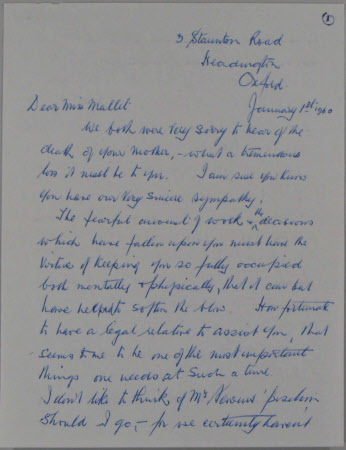 (1)
3 Staunton Road
Headington
Oxford.
January 1st 1960
Dear Miss Mallet
We both were very sorry to hear of the
death of your mother, - what a tremendous
loss it must be to you. I am sure you know
you have our very sincere sympathy.
The fearful amount of work & the decisions
which have fallen upon you must have the
virtue of keeping you so fully occupied
both mentally & physically, that it can but
have helped to soften the blow. How fortunate
to have a legal relative to assist you, that
seems to me to be one of the most important
things one needs at such a time.
I don't like to think of Mr position
should I go, - for we certainly haven't